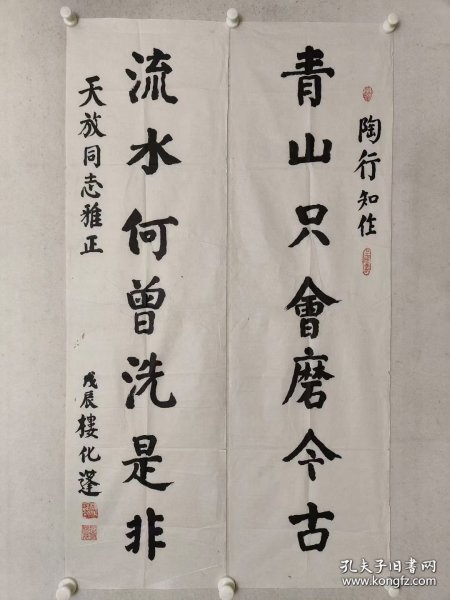 陶行知住
青山只會磨今古
流水何曾洗是非
天放同志雅正
戊辰樓化蓬
孔夫子旧书网
www.kongfz.com